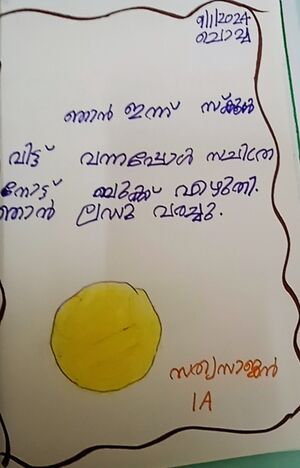 9/1/2024
ചൊവ്വ
ഞാൻ ഇന്ന് സ്കൂൾ
വിട്ട് വന്നപ്പോൾ സചിത്ര
നോട്ട് ബുക്ക് എഴുതി.
ഞാൻ ലഡു വരച്ചു.
സത്യസാജൻ
1A